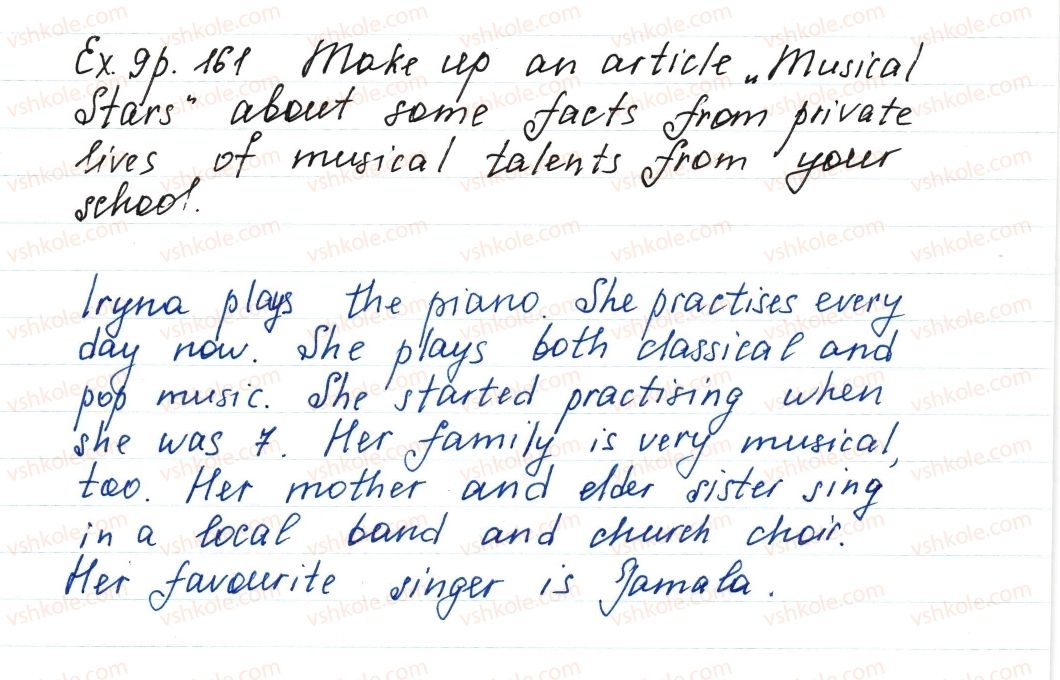 Ex. 9 p. 161 Make up an article „Musical
Stars“ about some facts from private
lives of musical talents from your
school.
Iryna plays the piano. She practises every
day now. She plays both classical and
pop music. She started practising when
she was 7. Her family is very musical,
too. Her mother and elder sister sing
in a local band and church choir.
Her favourite singer is Jamala.